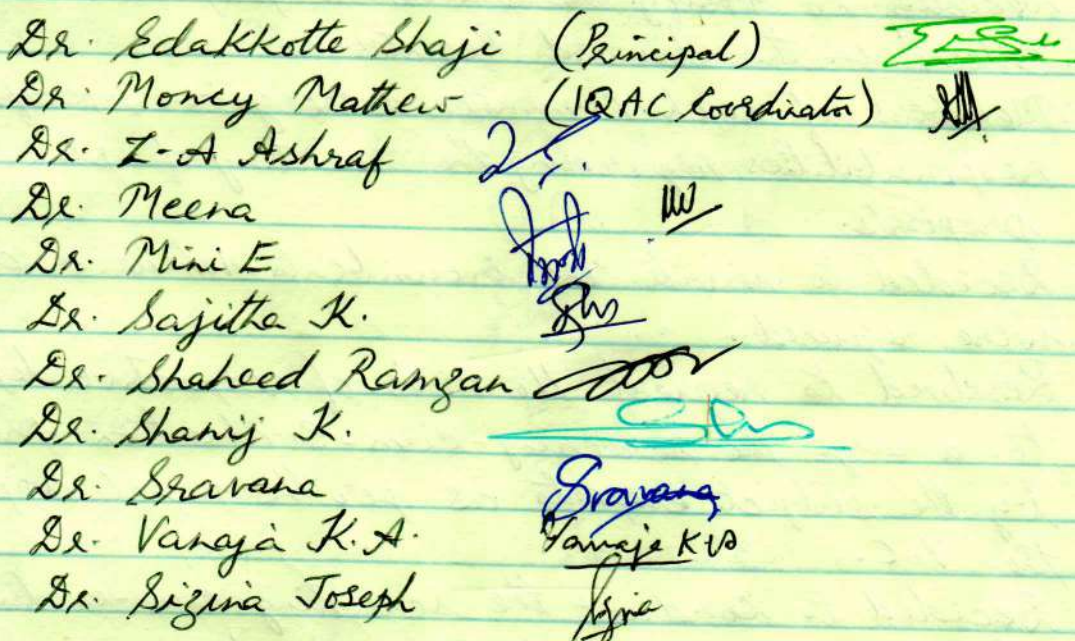 Dr. Edakkotte Shaji (Principal)
Dr. Moncy Mathew (IQAC Coordinator)
Dr. Z-A Ashraf
Dr. Meena
Dr. Mini E
Dr. Sajitha K.
Dr. Shaheed Ramzan
Dr. Shanij K.
Dr. Sravana Sravana
Dr. Vanaja K.A. Vanaja KA
Dr. Sizina Joseph